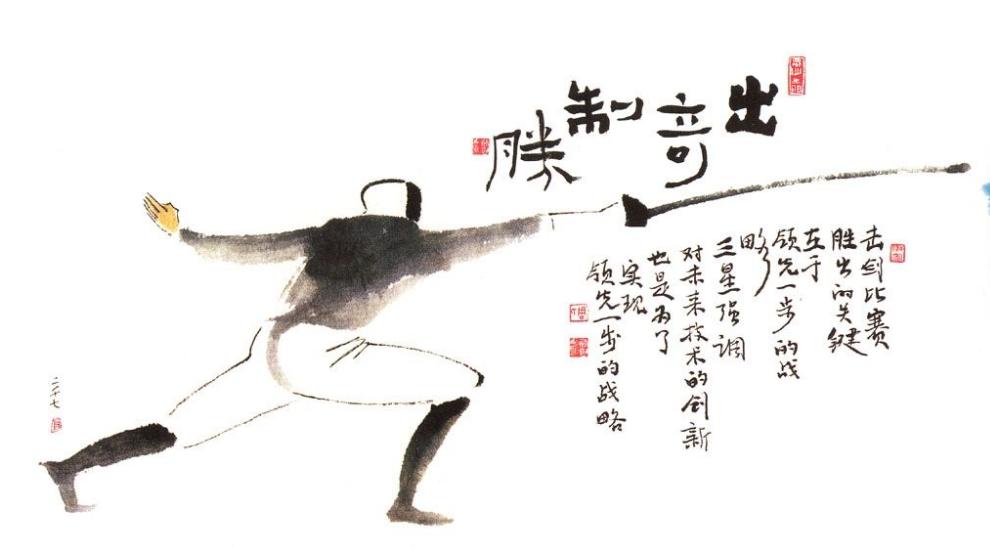 出奇制勝
击剑比赛
胜出的关键
在于
领先一步的战
略
三星强调
对未来技术的创新
也是为了
实现
领先一步的战略